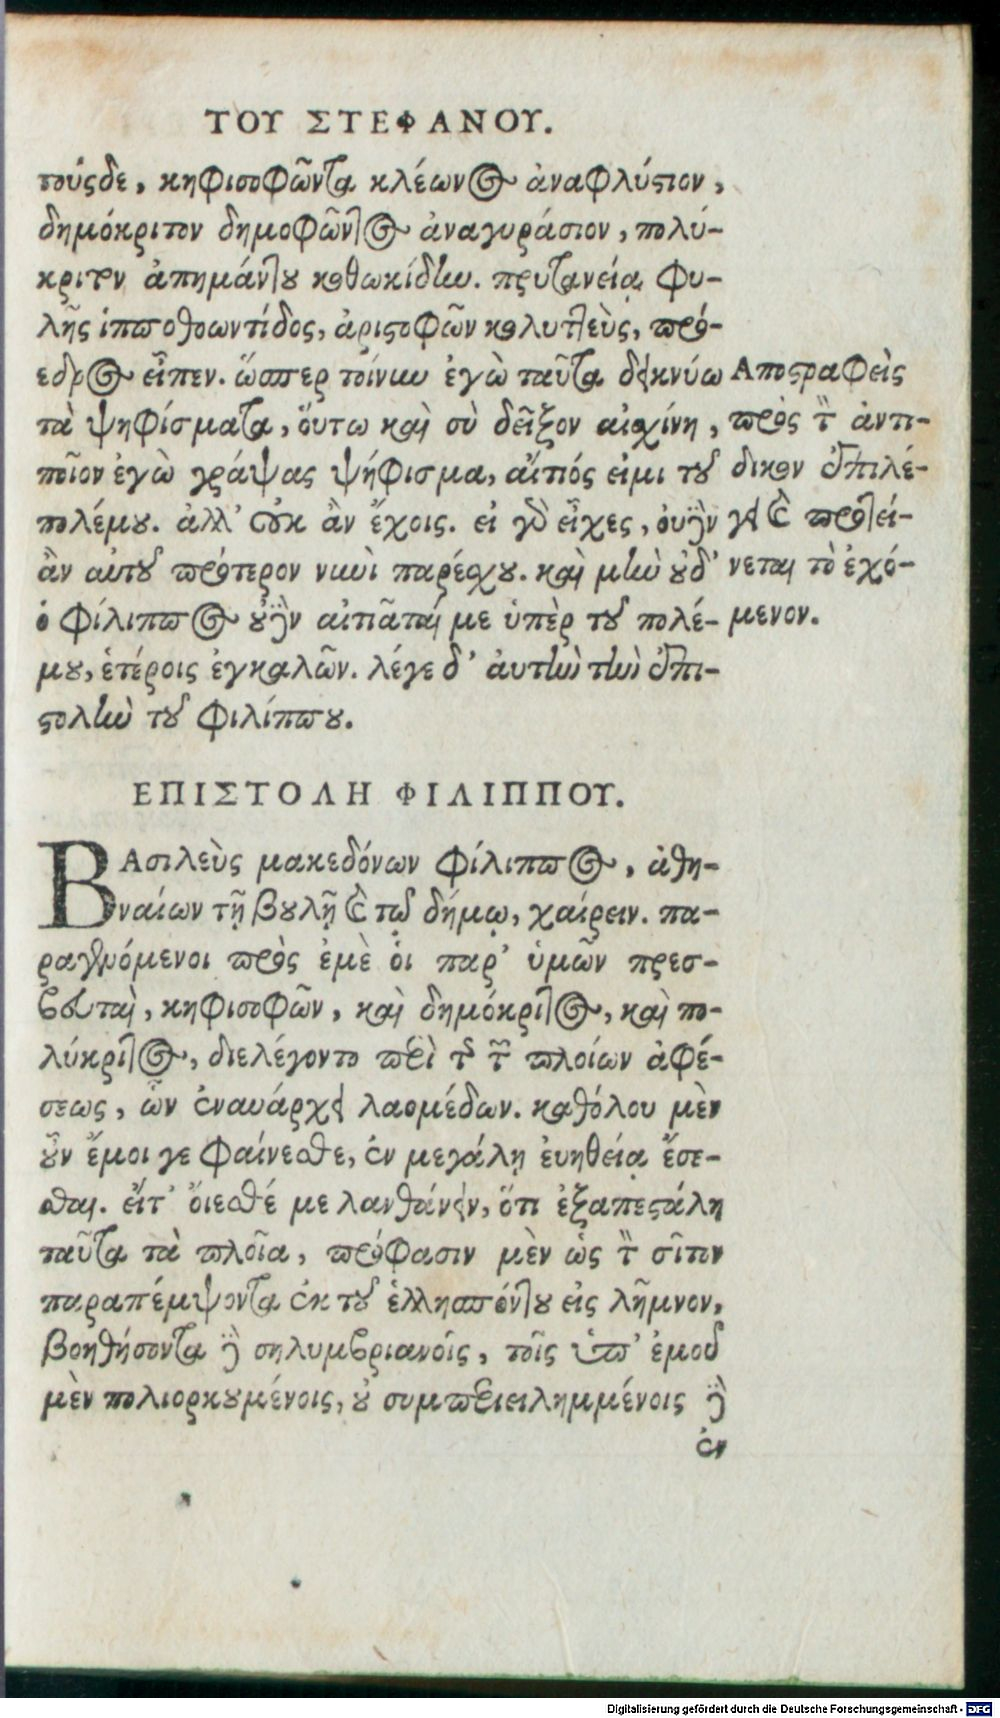 ΤΟΥ ΣΤΕΦΑΝΟΥ.
τούςδε, κηφισοφῶντα κλέωνος ἀναφλύστιον,
δημόκριτον δημοφῶντος ἀναγυράσιον, πολύ-
κριτον ἀπημάντου κοθωκίδην. πρυτανείᾳ φυ-
λῆς ἱπποθοωντίδος, ἀριστοφῶν κολυττεὺς, πρό-
εδρος εἶπεν. ὥσπερ τοίνυν ἐγὼ ταῦτα δεικνύω
τὰ ψηφίσματα, ὅυτω καὶ σὺ δεῖξον αἰσχίνη,
ποῖον ἐγὼ γράψας ψήφισμα, αἴτιός εἰμι τοῦ
πολέμου. ἀλλ' οὐκ ἂν ἔχοις. εἰ γὰρ εἶχες, ουδὲν
ἂν αυτοῦ πρότερον νυνὶ παρέσχου. καὶ μὴν οὐδ'
ὁ φίλιππος οὐδὲν αἰτιᾶταί με ὑπὲρ τοῦ πολέ-
μου, ἑτέροις ἐγκαλῶν. λέγε δ' ἀυτὴν τὴν ἐπι-
στολὴν τοῦ φιλίππου.
Αποστραφεὶς
πρὸς τὸν ἀντι-
δικον ἐπιλέ-
γει καὶ προτεί-
νεται τὸ ἐχό-
μενον.
ΕΠΙΣΤΟΛΗ ΦΙΛΙΠΠΟΥ.
ΒΑσιλεὺς μακεδόνων φίλιππος, ἀθη-
ναίων τῇ βουλῇ καὶ τῷ δήμῳ, χαίρειν. πα-
ραγενόμενοι πρὸς ἐμὲ ὁι παρ' ὑμῶν πρεσ-
βευταὶ, κηφισοφῶν, καὶ δημόκριτος, καὶ πο-
λύκριτος, διελέγοντο περὶ τῆς τῶν πλοίων ἀφέ-
σεως, ὧν ἐναυάρχει λαομέδων. καθόλου μὲν
οὖν ἔμοι γε φαίνεσθε, ἐν μεγάλῃ ἐυηθείᾳ ἔσε-
σθαι. εἴτ' ὄιεσθέ με λανθάνειν, ὅτι ἐξαπεστάλη
ταῦτα τὰ πλοῖα, πρόφασιν μὲν ὡς τὸν σῖτον
παραπέμψοντα ἐκ τοῦ ἑλλησπόντου εἰς λῆμνον,
βοηθήσοντα δὲ σηλυμβριανοῖς, τοῖς ὑπ' ἐμοῦ
μὲν πολιορκουμένοις, οὐ συμπεριειλημμένοις δὲ
ἐν
Digitalisierung gefördert durch die Deutsche Forschungsgemeinschaft - DFG